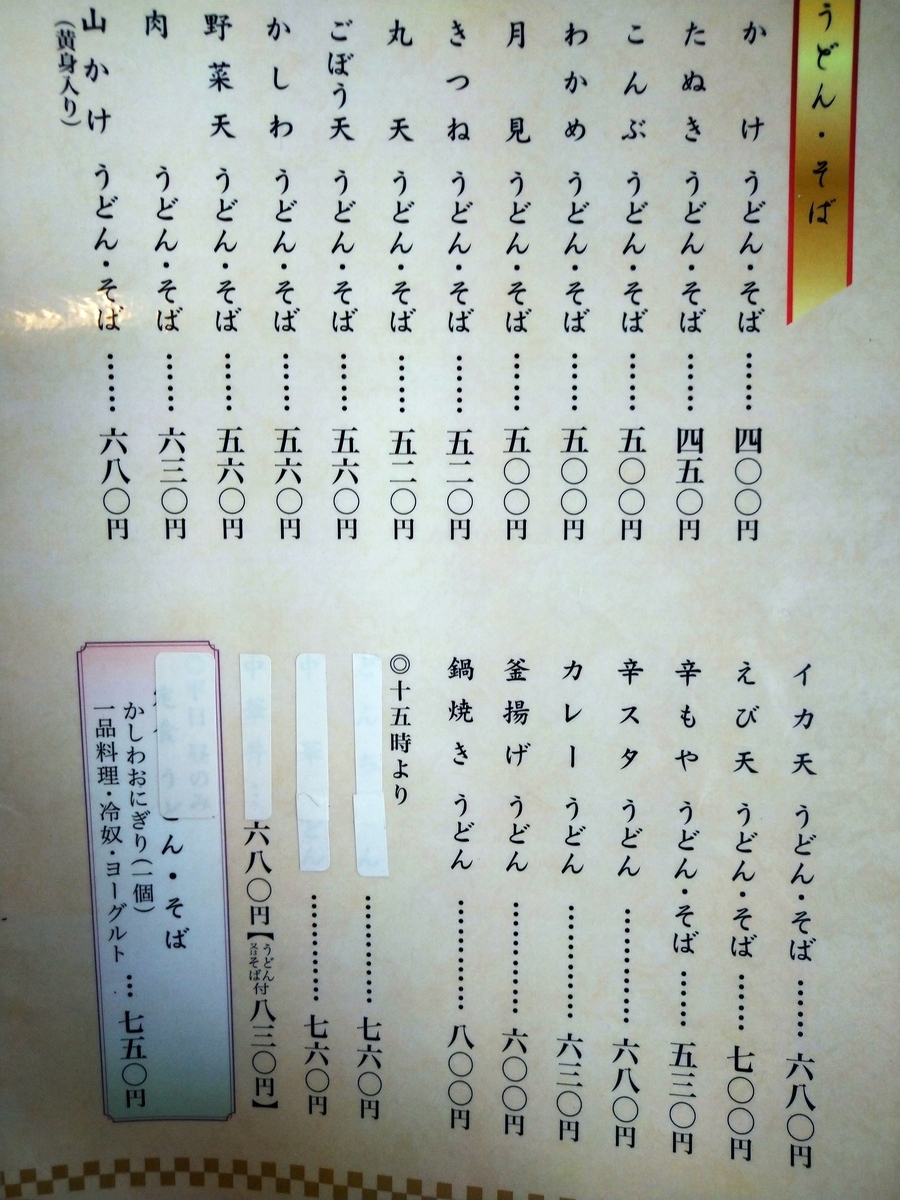 うどん・そば
かけ うどん・そば ……… 四〇〇円
たぬき うどん・そば ……… 四五〇円
こんぶ うどん・そば ……… 五〇〇円
わかめ うどん・そば ……… 五〇〇円
月見 うどん・そば ……… 五〇〇円
きつね うどん・そば ……… 五二〇円
丸天 うどん・そば ……… 五二〇円
ごぼう天 うどん・そば ……… 五六〇円
かしわ うどん・そば ……… 五六〇円
野菜天 うどん・そば ……… 五六〇円
肉 うどん・そば ……… 六三〇円
山かけ うどん・そば ……… 六八〇円
(黄身入り)
イカ天 うどん・そば ……… 六八〇円
えび天 うどん・そば ……… 七〇〇円
辛もや うどん・そば ……… 五三〇円
辛スタ うどん ……… 六八〇円
カレー うどん ……… 六三〇円
釜揚げ うどん ……… 六〇〇円
鍋焼き うどん ……… 八〇〇円
◎十五時より
……… 七六〇円
……… 七六〇円
中華丼… 六八〇円【うどん又はそば付 八三〇円】
◎平日 昼のみ
定食 うどん・そば
かしわおにぎり(一個)
一品料理・冷奴・ヨーグルト … 七五〇円